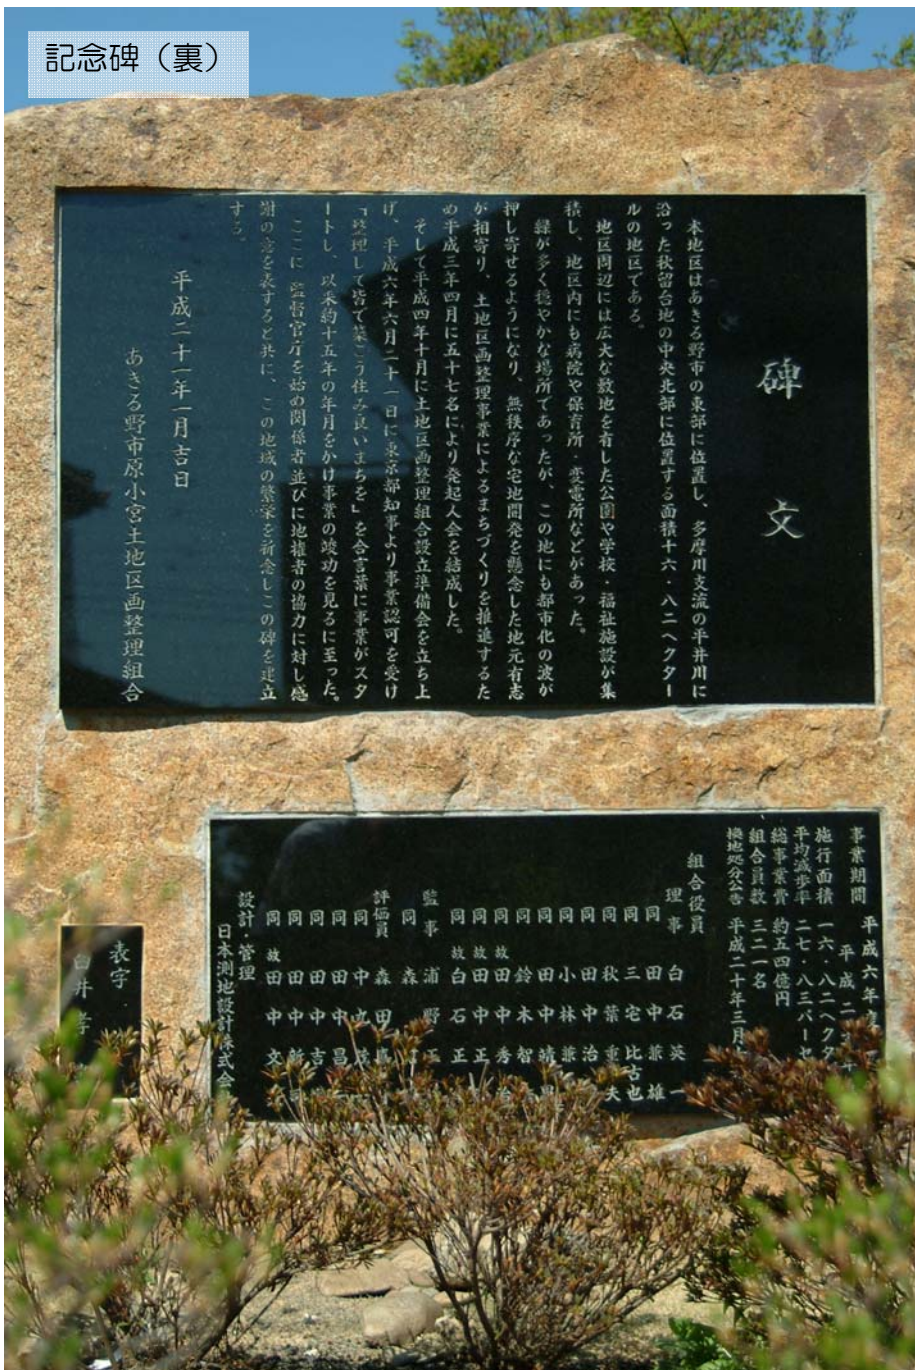 記念碑（裏）
碑文
本地区はあきる野市の東部に位置し、多摩川支流の平井川に
沿った秋留台地の中央北部に位置する面積十六・八二ヘクター
ルの地区である。
地区周辺には広大な敷地を有した公園や学校・福祉施設が集
積し、地区内にも病院や保育所・変電所などがあった。
緑が多く穏やかな場所であったが、この地にも都市化の波が
押し寄せるようになり、無秩序な宅地開発を懸念した地元有志
が相寄り、土地区画整理事業によるまちづくりを推進するた
め平成三年四月に五十七名により発起人会を結成した。
そして平成四年十月に土地区画整理組合設立準備会を立ち上
げ、平成六年六月二十一日に東京都知事より事業認可を受け
「整理して皆で築こう住み良いまちを」を合言葉に事業がスタ
ートし、以来約十五年の年月をかけ事業の竣功を見るに至った。
ここに、監督官庁を始め関係者並びに地権者の協力に対し感
謝の意を表すると共に、この地域の繁栄を祈念しこの碑を建立
する。
平成二十一年一月吉日
あきる野市原小宮土地区画整理組合
事業期間 平成六年
平成二
施行面積 一六・八二ヘクタ
平均減歩率 二七・八三パーセ
総事業費 約五四億円
組合員数 三二一名
換地処分公告 平成二十年三月
組合役員
理事 白石英一
同 田中兼雄
同 三宅比古也
同 秋葉重夫
同 田中治
同 小林兼
同 田中靖
同 鈴木智
同 故田中秀治
同 故田中正
同 故白石正
監事 浦野
同 森
評価員 森田
同 中
同 田中昌
同 田中吉
同 田中
同 故田中文
設計・管理
日本測地設計株式会
表字
白井